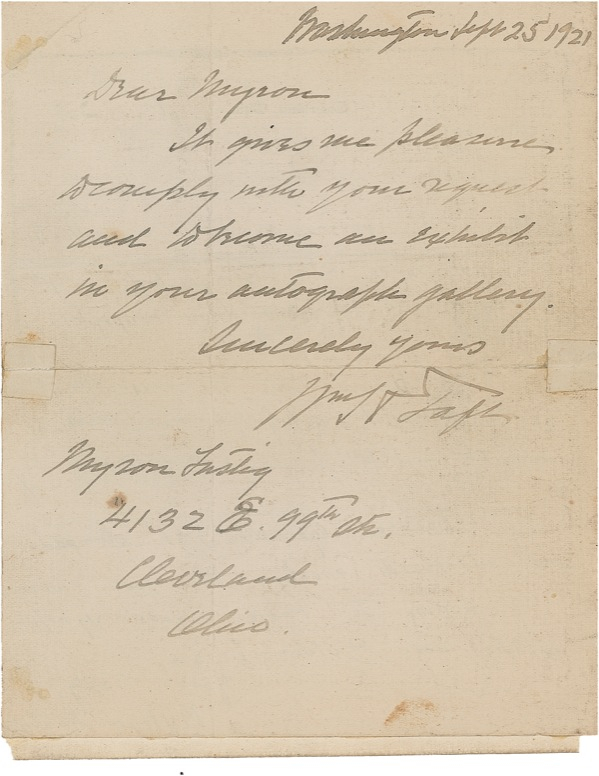 Washington Sept 25 1921
Dear Myron
It gives me pleasure
to comply with your request
and to become an exhibit
in your autograph gallery.
Sincerely yours
Wm H Taft
Myron Lustig
4132 E. 99th St.
Cleveland
Ohio.